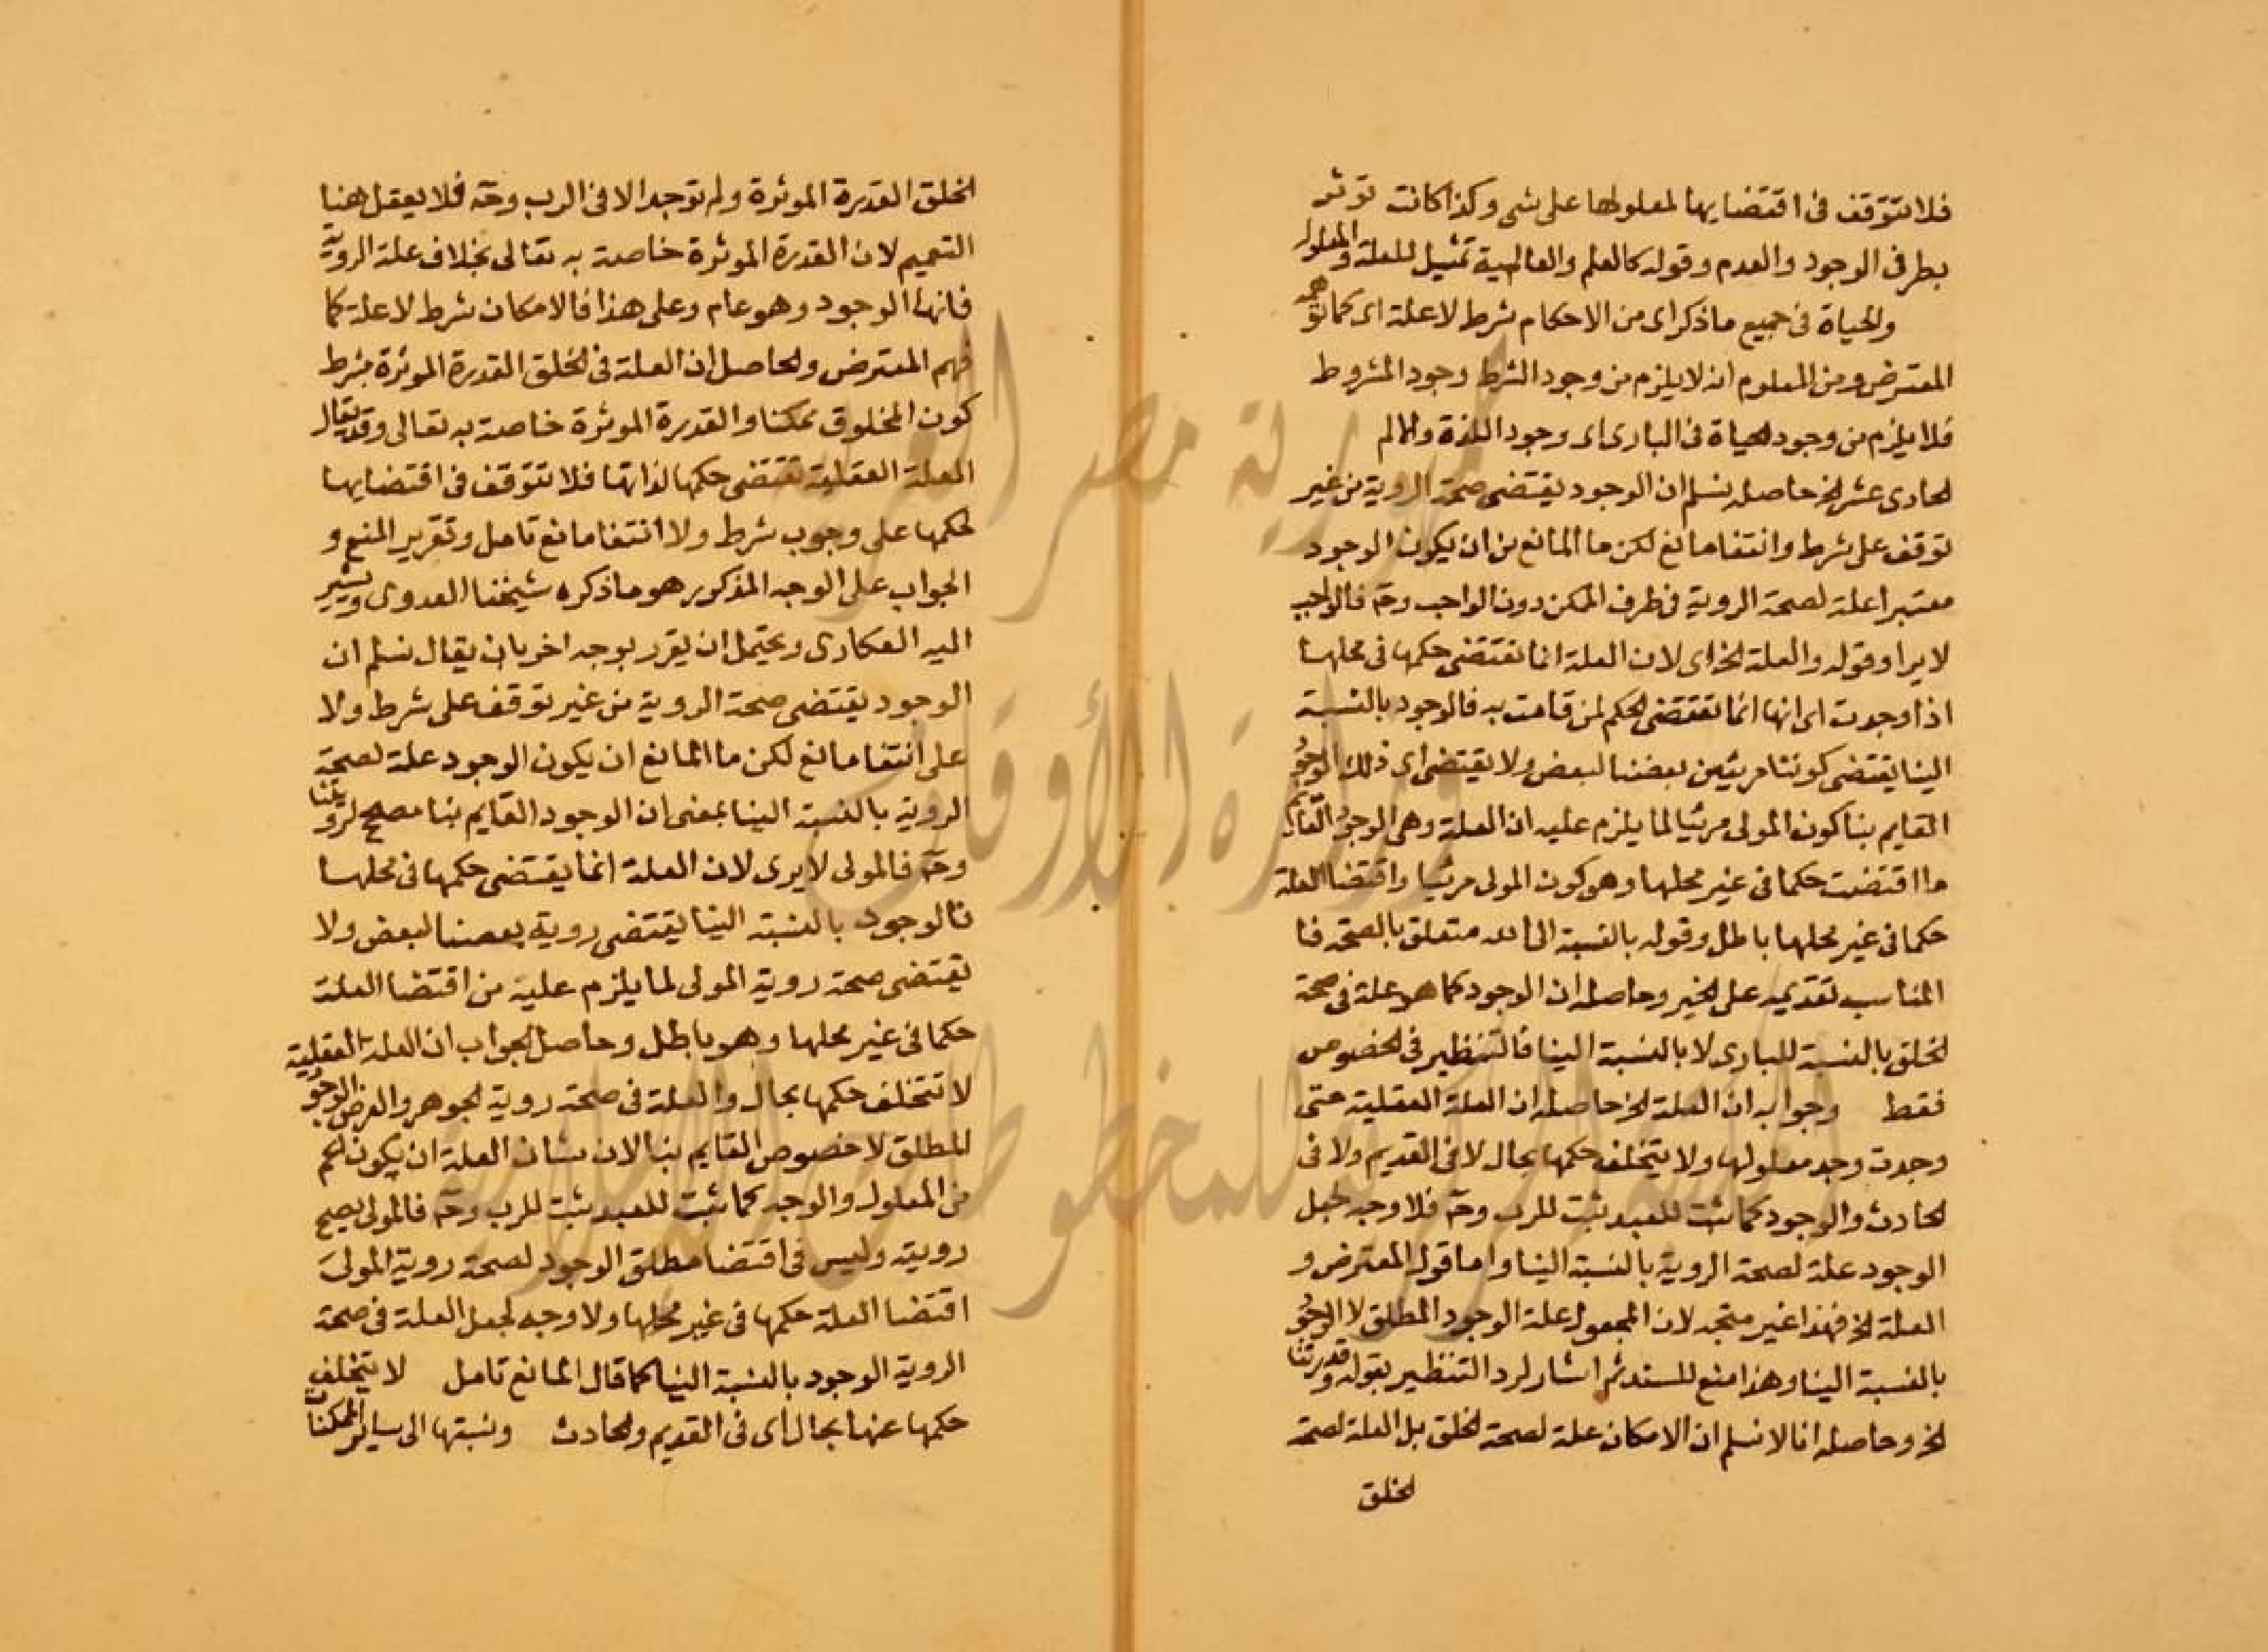 فلا تتوقف فى اقتضايها لمعلولها على شى وكذا كانت توثر
بطرفى الوجود والعدم وقوله كالعلم والعالمية تمثيل للعلة والمعلول
والحياة فى جميع ماذكر اى من الاحكام شرط لاعلة اى كما توهمه
المعترض ومن المعلوم انه لا يلزم من وجود الشرط وجود المشروط
فلا يلزم من وجود الحياة فى البارى اى وجود اللذة والالم
الحادى عشر الخ حاصله نسلم ان الوجود يقتضى صحة الروية من غير
توقف على شرط وانتفا مانع لكن ما المانع من ان يكون الوجود
معتبرا علة لصحة الروية فى طرف الممكن دون الواجب وحـ فالواجب
لا يرا وقوله والعلة الخ اى لان العلة انما تقتضى حكمها فى محلها
اذا وجدت اى انها انما تقتضى الحكم لمن قامت به فالوجود بالنسبة
الينا يقتضى كوننا مريين بعضنا لبعض ولا يقتضى اى ذلك الوجود
القايم بنا كون المولى مرئيا لما يلزم عليه ان العلة وهى الوجود القايم
بنا اقتضت حكما فى غير محلها وهو كون المولى مرئيا واقتضا العلة
حكما فى غير محلها باطل وقوله بالنسبة الى الله متعلق بالصحة فا
المناسب تقديمه على الخبر وحاصله ان الوجود كما هو علة فى صحة
الخلق بالنسبة للبارى لا بالنسبة الينا فالتنظير فى الخصوص
فقط وجوابه ان العلة الخ حاصله ان العلة العقلية متى
وجدت وجد معلولها ولا يتخلف حكمها بحال لا فى القديم ولا فى
الحادث والوجود كما ثبت للعبد ثبت للرب وحـ فلا وجه لجعل
الوجود علة لصحة الروية بالنسبة الينا واما قول المعترض و
العلة الخ فهذا غير متجه لان المجعول علة الوجود المطلق لا الوجود
بالنسبة الينا وهذا منع للسند ثم اشار لرد التنظير بقوله وقدرتنا
الخ وحاصله انا لا نسلم ان الامكان علة لصحة الخلق بل العلة لصحة
الخلق
الخلق القدرة الموثرة ولم توجد الا فى الرب وحـ فلا يعقل هنا
التعميم لان القدرة الموثرة خاصة به تعالى بخلاف علة الروية
فانها الوجود وهو عام وعلى هذا فالامكان شرط لا علة كما
فهم المعترض والحاصل ان العلة فى الخلق القدرة الموثرة بشرط
كون المخلوق ممكنا والقدرة الموثرة خاصة به تعالى وقد يقال
العلة العقلية تقتضى حكمها لذاتها فلا تتوقف فى اقتضايها
لحكمها على وجوب شرط ولا انتفا مانع تامل وتقرير المنع و
الجواب على الوجه المذكور هو ماذكره شيخنا العدوى ويشير
اليه العكارى ويحتمل ان يقرر بوجه اخر بان يقال نسلم ان
الوجود يقتضى صحة الروية من غير توقف على شرط ولا
على انتفا مانع لكن ما المانع ان يكون الوجود علة لصحة
الروية بالنسبة الينا بمعنى ان الوجود القايم بنا مصحح لرويتنا
وحـ فالمولى لا يرى لان العلة انما يقتضى حكمها فى محلها
فالوجود بالنسبة الينا يقتضى روية بعضنا لبعض ولا
يقتضى صحة روية المولى لما يلزم عليه من اقتضا العلة
حكما فى غير محلها وهو باطل وحاصل الجواب ان العلة العقلية
لا تتخلف حكمها بحال والعلة فى صحة روية الجوهر والعرض الوجود
المطلق لا خصوص القايم بنا لان شان العلة ان يكون اعم
من المعلول والوجه كما ثبت للعبد ثبت للرب وحـ فالمولى يصح
رويته وليس فى اقتضا مطلق الوجود لصحة روية المولى
اقتضا العلة حكمها فى غير محلها ولا وجه لجعل العلة فى صحة
الروية الوجود بالنسبة الينا كما قال المانع تامل لا يتخلف
حكمها عنها بحال اى فى القديم والحادث ونسبتها الى ساير الممكنات